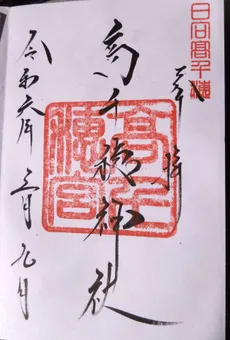 日向高千穂
奉拝
高千穂神社
高千
穂宮
令和六年三月九日